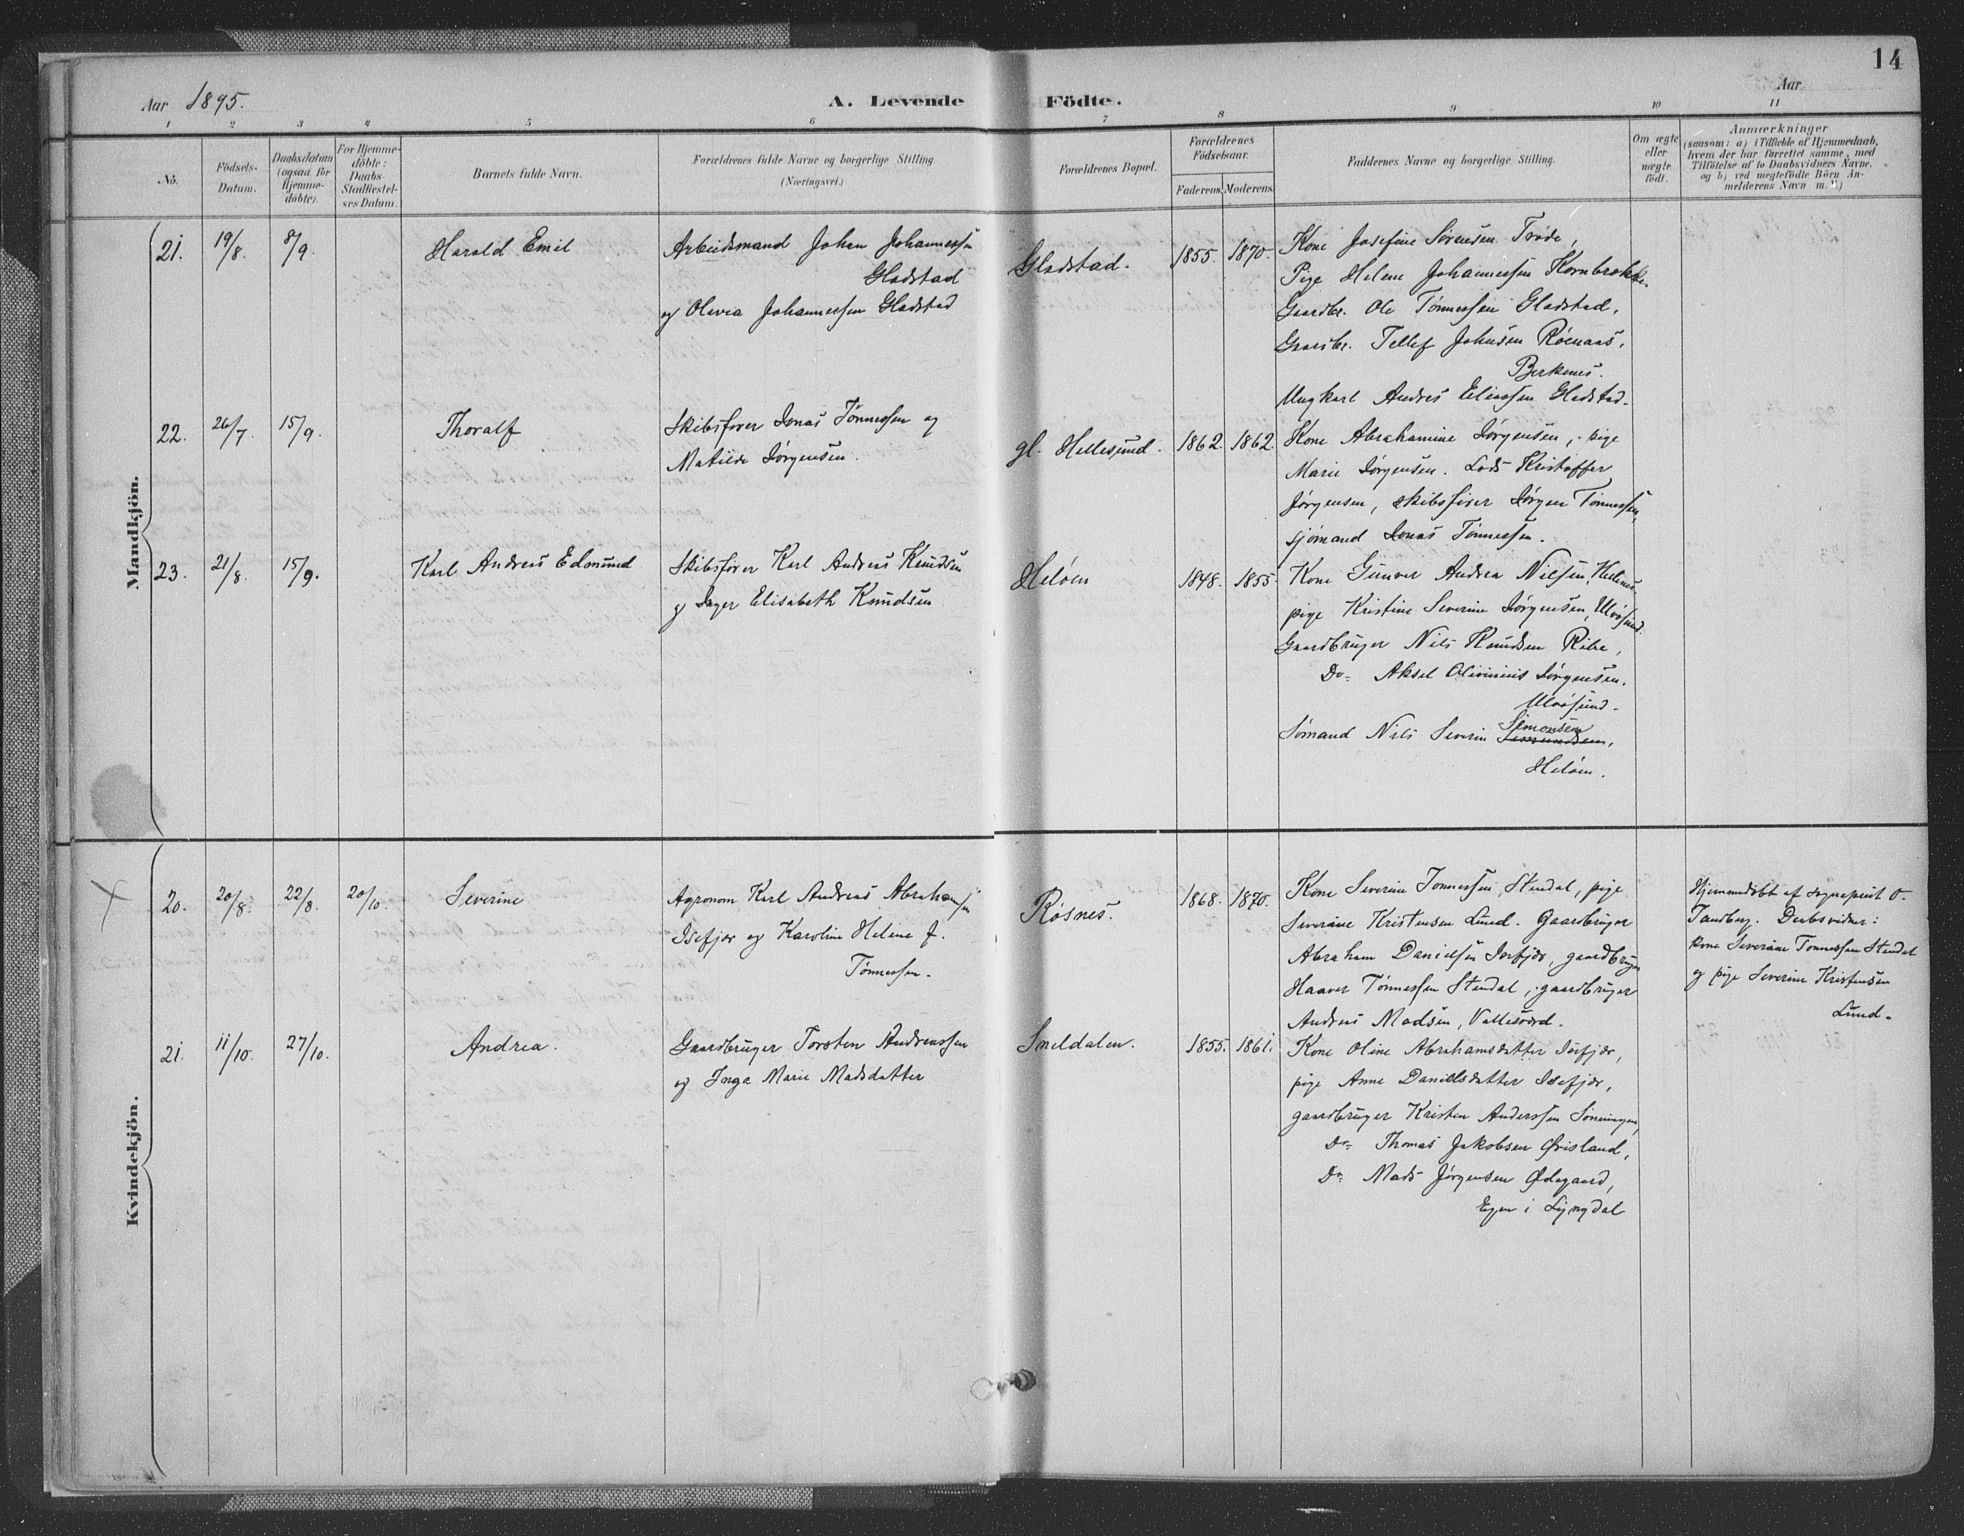 14
Aar 1895.
A. Levende Födte.
Aar
1 2 3 4 5 6 7 8 9 10 11
No.
Födsels-
Datum.
Daabsdatum
(ogsaa for
Hjemme-
döbte).
For Hjemme-
döbte:
Daabs-
Stadfæstel-
ses Datum.
Barnets fulde Navn.
Forældrenes fulde Navne og borgerlige Stilling.
(Næringsvei.)
Forældrenes Bopæl.
Forældrenes
Födselsaar.
Faderens. Moderens.
Faddernes Navne og borgerlige Stilling.
Om ægte
eller
uægte
födt.
Anmærkninger
(saasom: a) i Tilfælde af Hjemmedaab,
hvem der har forrettet samme, med
Tilföielse af to Daabsvidners Navne.
og b) ved uægtefödte Börn An-
melderens Navn m. v.)
Mandkjön.
21. 19/8. 8/9. Harald Emil
Arbeidsmand Johan Johannessen
Gladstad
og Olevia Johannessen Gladstad
Gladstad. 1855. 1870.
Kone Josefine Sørensen Trøde,
Pige Helene Johannessen Hornbrekke.
Gaardbr. Ole Tønnessen Gladstad.
Gaardbr. Tellef Johnsen Røenaas,
Berkenes.
Ungkarl Andres Eliassen Gladstad.
22. 26/7. 15/9. Thoralf
Skibsfører Jonas Tønnessen og
Matilde Jørgensen.
gl. Hellesund. 1862. 1862.
Kone Abrahamine Jørgensen, pige
Marie Jørgensen. Lods Kristoffer
Jørgensen, skibsfører Jørgen Tønnessen,
sjømand Jonas Tønnessen.
23. 21/8. 15/9. Karl Andreas Edmund
Skibsfører Karl Andreas Knudsen
og Inger Elisabeth Knudsen
Heløen 1848. 1855.
Kone Gunver Andrea Nielsen,
pige Kristine Severine Jørgensen, Ulvøsund.
Gaardbruger Nils Knudsen Ribe,
Do- Aksel Olivinius Jørgensen.
Ulvøsund.
Sømand Nils Severin Simonsen
Heløen.
Kvindekjön.
20. 20/8. 22/8. 20/10. Severine
Agronom Karl Andreas Abrahamsen
Isefjær og Karoline Helene f.
Tønnessen.
Røsnes. 1868. 1870.
Kone Severine Tønnessen, Stendal, pige
Severine Kristensen Lund. Gaardbruger
Abraham Danielsen Isefjær, gaardbruger
Haaver Tønnessen Stendal, gaardbruger
Andreas Madsen, Vallesværd.
Hjemmedøbt af sogneprest O.
Tandberg. Daabsvidner:
kone Severine Tønnessen Stendal
og pige Severine Kristensen
Lund.
21. 11/10. 27/10. Andrea.
Gaardbruger Torsten Andreassen
og Inga Marie Madsdatter
Smeldalen. 1855. 1861.
Kone Oline Abrahamsdatter Isefjær,
pige Anne Danielsdatter Isefjær,
gaardbruger Kristen Anderssen Sønningen,
Do- Thomas Jakobsen Øvisland,
Do- Mads Jørgensen Ødegaard,
Egen i Lyngdal